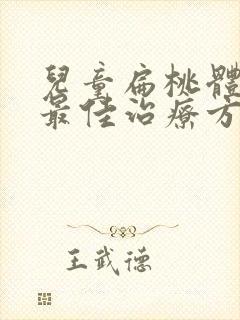 兒童扁桃體
最佳治療方
王武德